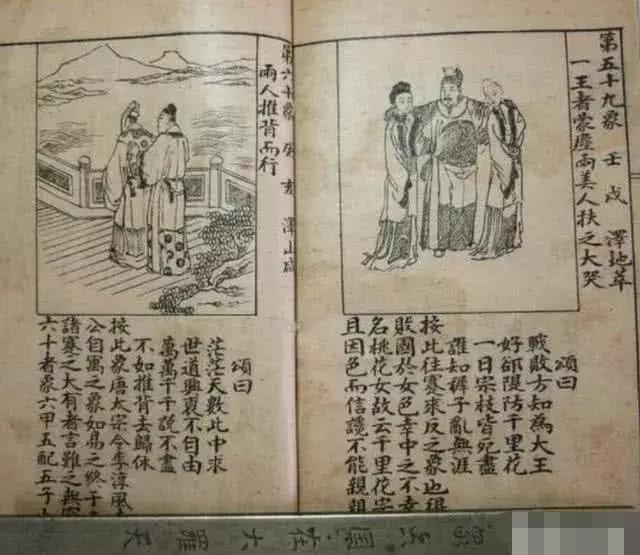 第五十九象 壬戌 澤地萃
一王者蒙塵兩美人扶之大哭
頌曰
戰敗方知為大王
好卻隄防千里花
一日宗枝皆死盡
誰知稗子亂無涯
按此往蹇來反之象也
敗國於女色幸中之不幸
名桃花女故云千里花宗
且因色而信讒不能親親
第六十象 癸亥 澤山咸
兩人推背而行
頌曰
茫茫天數此中求
世道興衰不自由
萬萬千千說不盡
不如推背去歸休
按此象唐太宗令李淳風
公自寓之象如易之終于
諸蹇之大有者言雖之無
六十者象六甲五配五子
大羅天